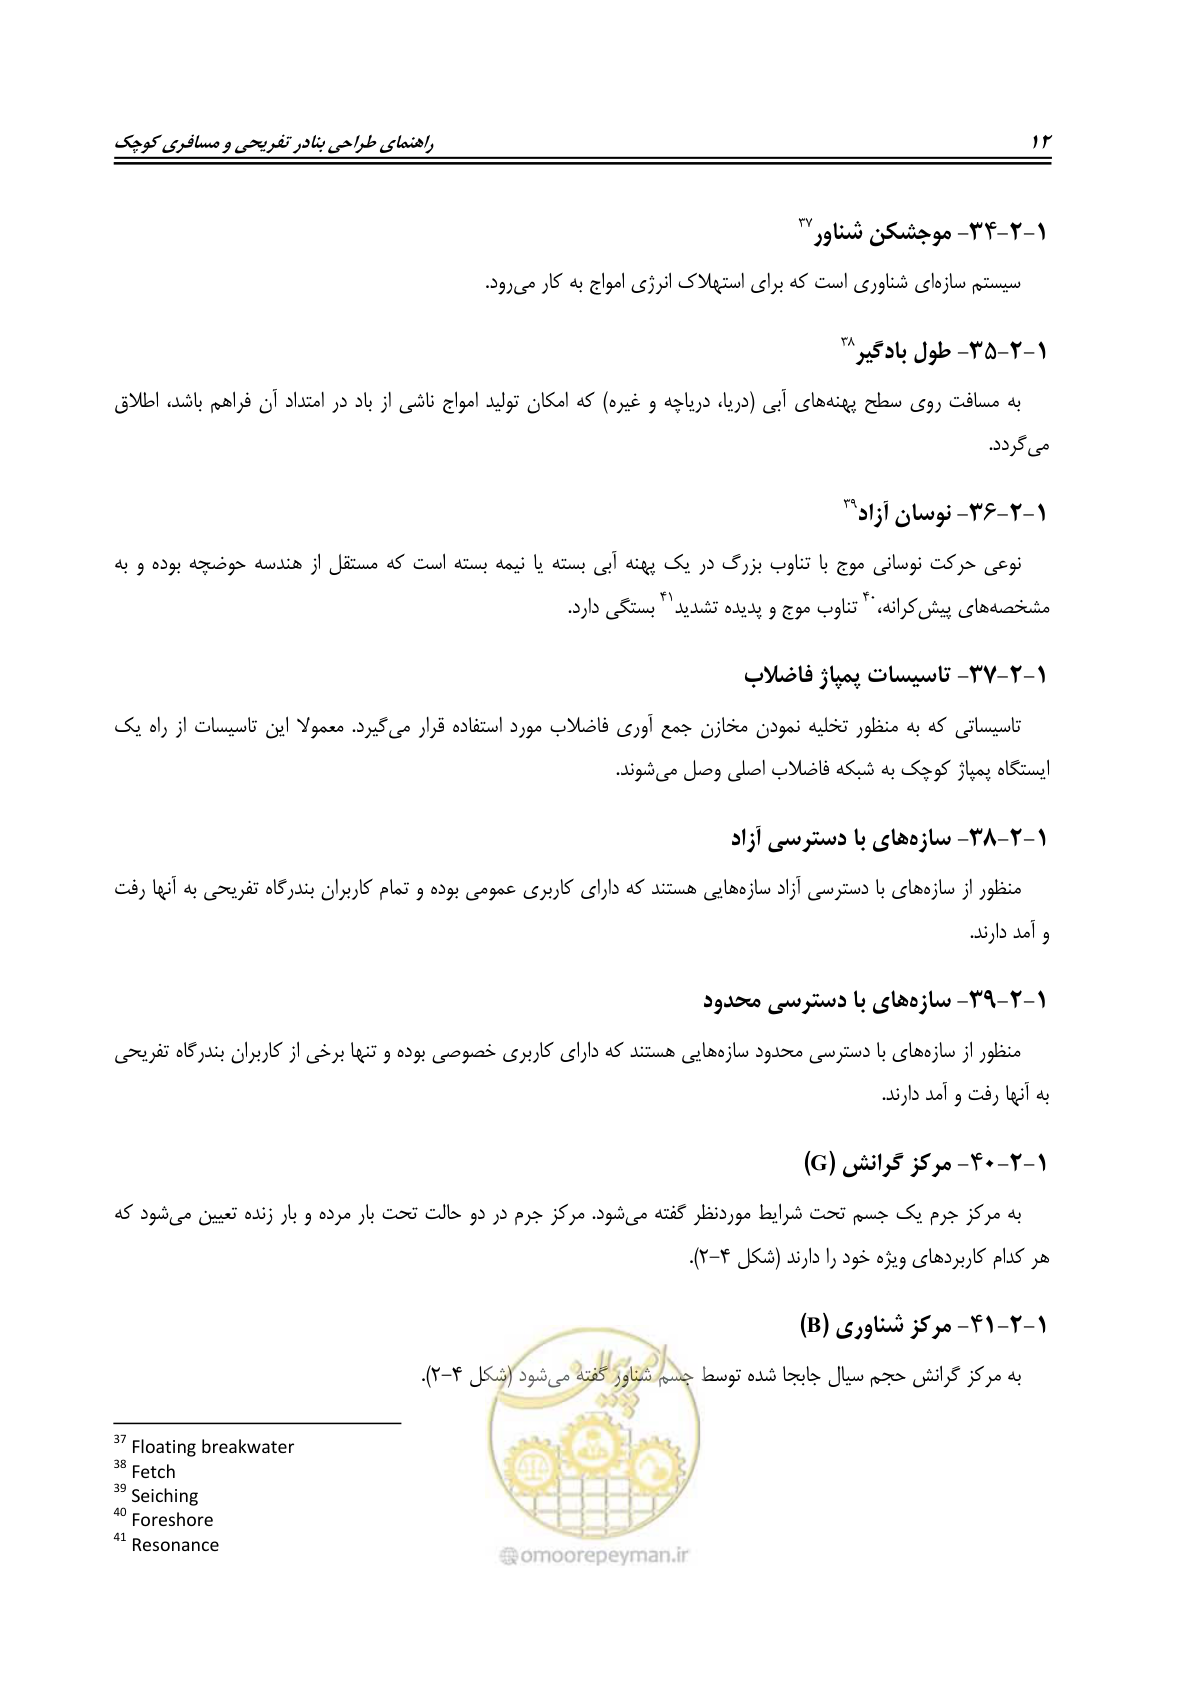 ۱۲ راهنمای طراحی بنادر تفریحی و مسافری کوچک
۱-۲-۳۴- موجشکن شناور۳۷
سیستم سازه‌ای شناوری است که برای استهلاک انرژی امواج به کار می‌رود.
۱-۲-۳۵- طول بادگیر۳۸
به مسافت روی سطح پهنه‌های آبی (دریا، دریاچه و غیره) که امکان تولید امواج ناشی از باد در امتداد آن فراهم باشد، اطلاق
می‌گردد.
۱-۲-۳۶- نوسان آزاد۳۹
نوعی حرکت نوسانی موج با تناوب بزرگ در یک پهنه آبی بسته یا نیمه بسته است که مستقل از هندسه حوضچه بوده و به
مشخصه‌های پیش‌کرانه،۴۰ تناوب موج و پدیده تشدید۴۱ بستگی دارد.
۱-۲-۳۷- تاسیسات پمپاژ فاضلاب
تاسیساتی که به منظور تخلیه نمودن مخازن جمع آوری فاضلاب مورد استفاده قرار می‌گیرد. معمولا این تاسیسات از راه یک
ایستگاه پمپاژ کوچک به شبکه فاضلاب اصلی وصل می‌شوند.
۱-۲-۳۸- سازه‌های با دسترسی آزاد
منظور از سازه‌های با دسترسی آزاد سازه‌هایی هستند که دارای کاربری عمومی بوده و تمام کاربران بندرگاه تفریحی به آنها رفت
و آمد دارند.
۱-۲-۳۹- سازه‌های با دسترسی محدود
منظور از سازه‌های با دسترسی محدود سازه‌هایی هستند که دارای کاربری خصوصی بوده و تنها برخی از کاربران بندرگاه تفریحی
به آنها رفت و آمد دارند.
۱-۲-۴۰- مرکز گرانش (G)
به مرکز جرم یک جسم تحت شرایط موردنظر گفته می‌شود. مرکز جرم در دو حالت تحت بار مرده و بار زنده تعیین می‌شود که
هر کدام کاربردهای ویژه خود را دارند (شکل ۴-۲).
۱-۲-۴۱- مرکز شناوری (B)
به مرکز گرانش حجم سیال جابجا شده توسط جسم شناور گفته می‌شود (شکل ۴-۲).
امور پیمان
37 Floating breakwater
38 Fetch
39 Seiching
40 Foreshore
41 Resonance
omoorepeyman.ir